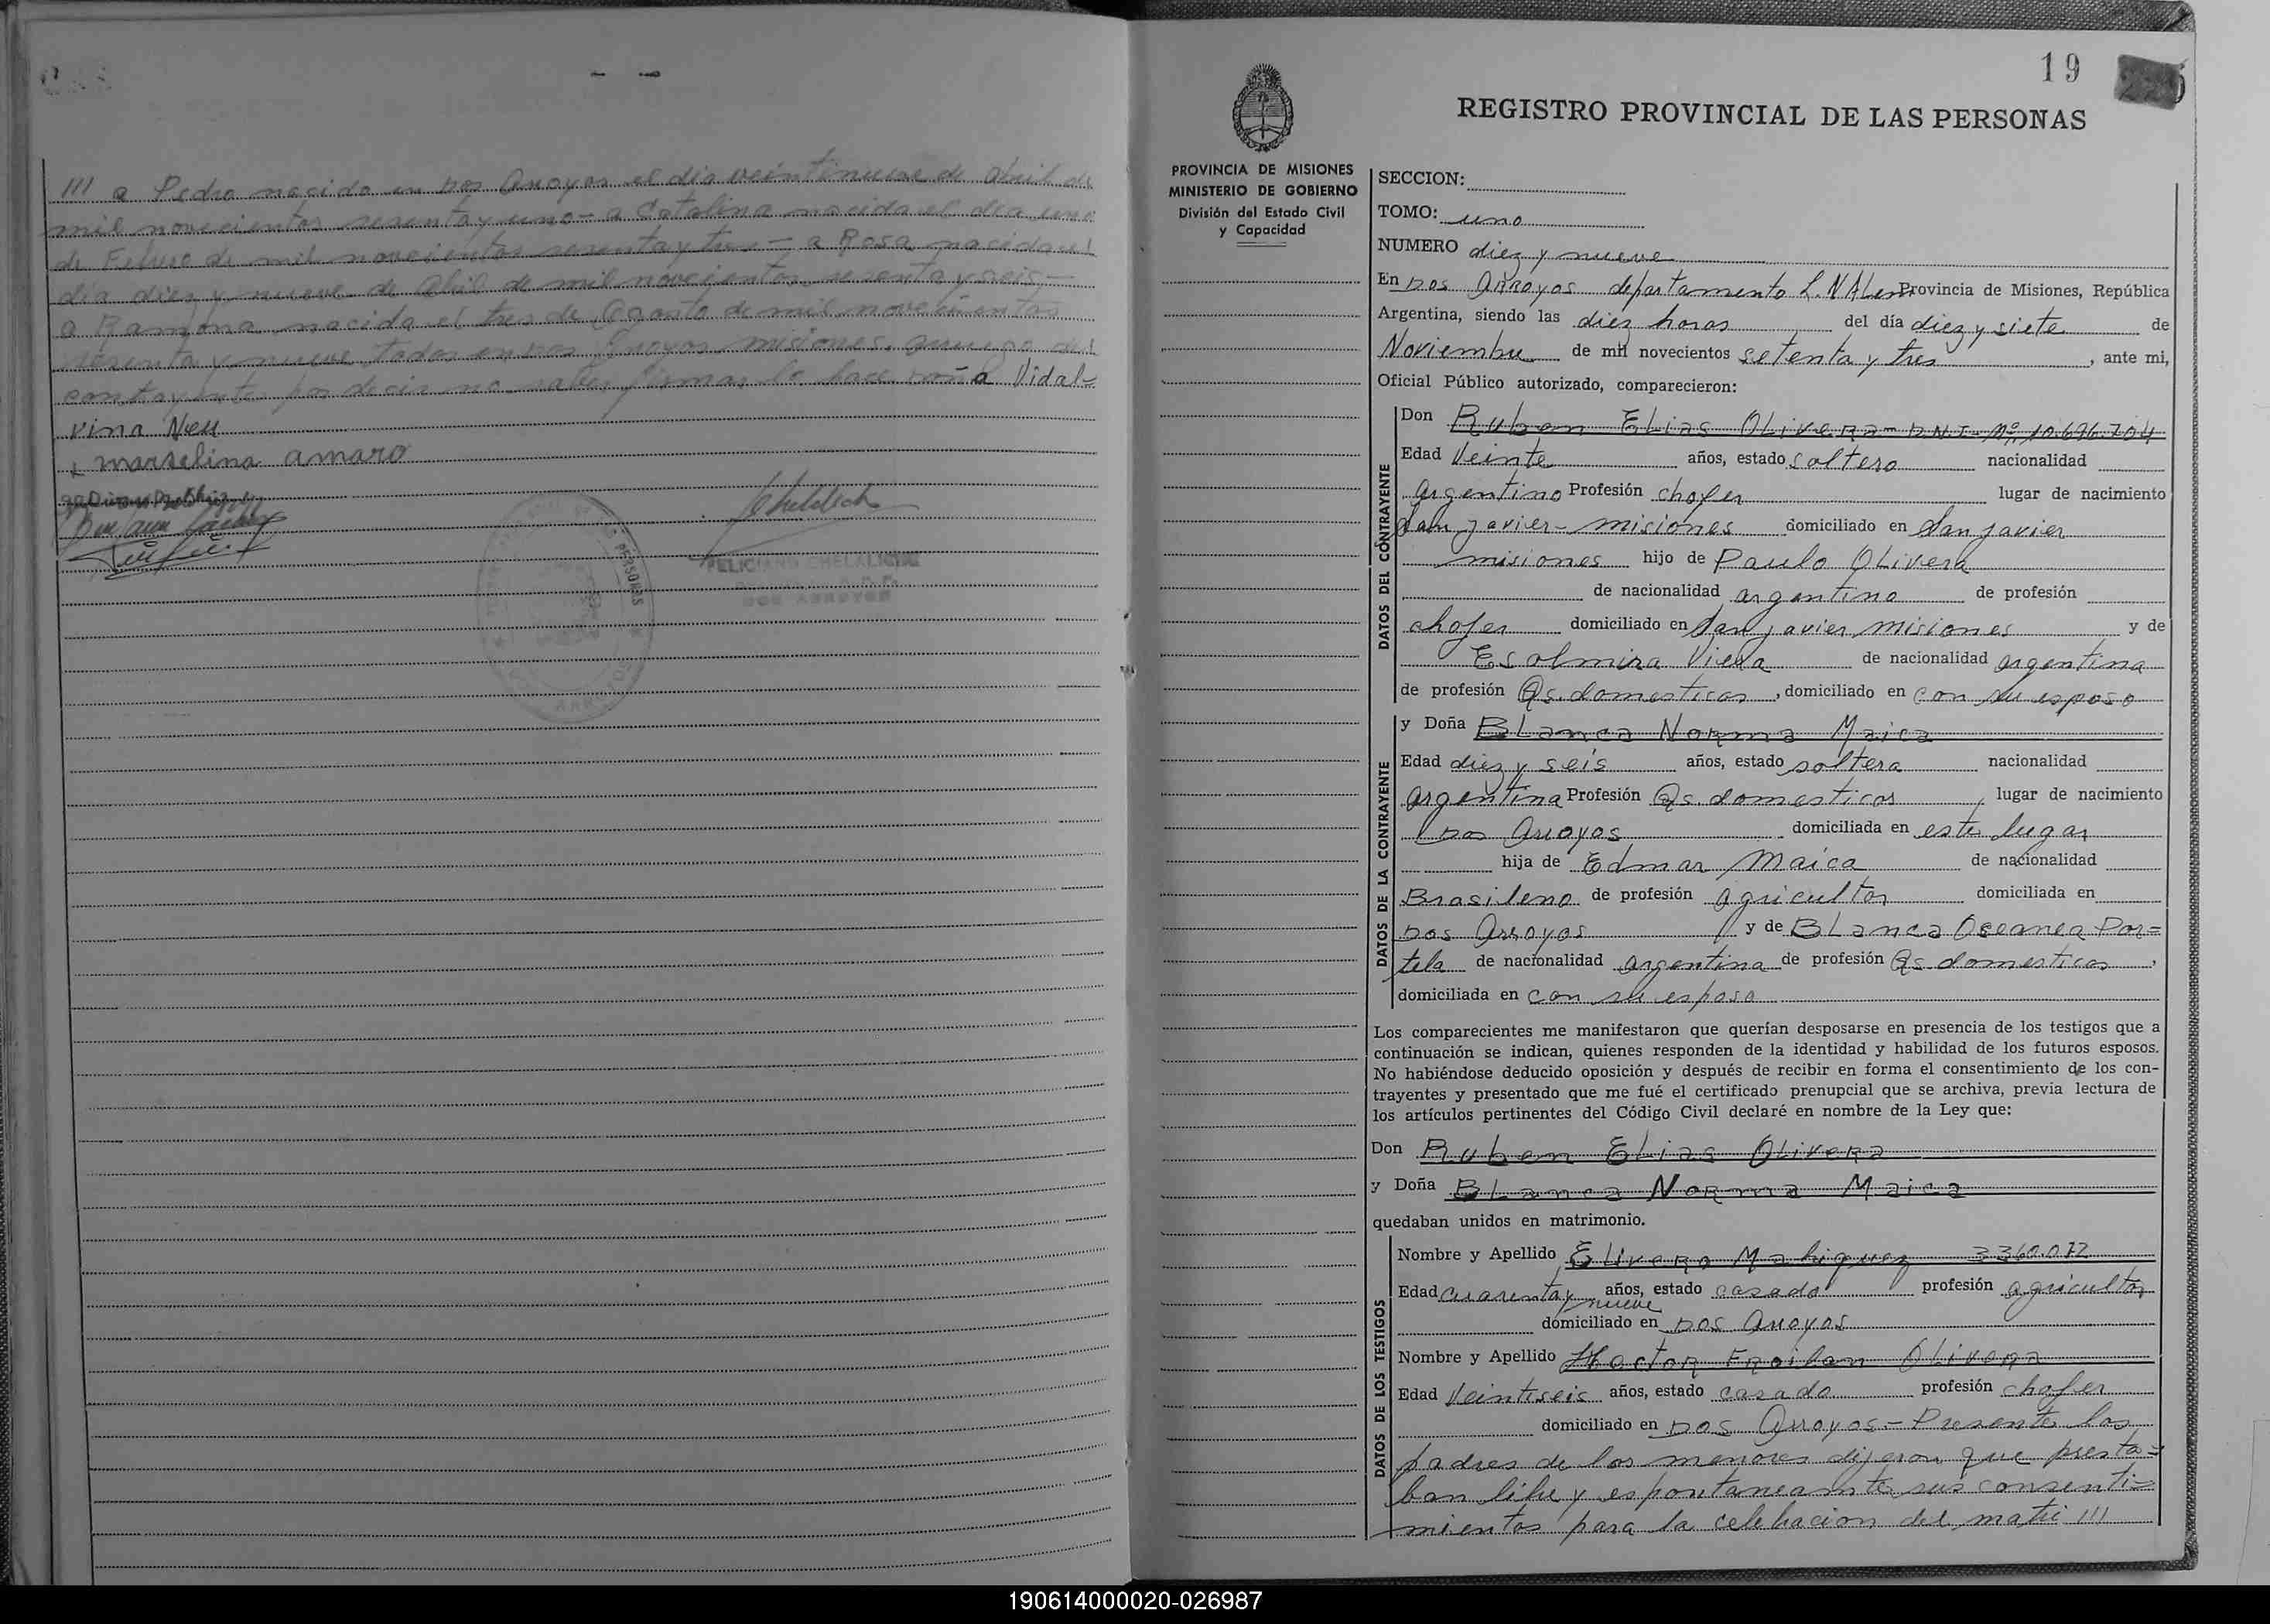 III a Pedro nacido en Dos Arroyos el dia veintinueve de Abril de
mil novecientos sesenta y uno - a Catalina nacida el dia uno
de Febrero de mil novecientos sesenta y tres - a Rosa nacida el
dia diez y nueve de Abril de mil novecientos sesenta y seis -
a Ramona nacida el tres de Agosto de mil novecientos
sesenta y nueve todos en Dos Arroyos misiones.
contrayente por decir no saber firmar lo hace Doña Vidal-
vina Neu
x marselina amaro
FELICIANO
DOS ARROYOS
19
REGISTRO PROVINCIAL DE LAS PERSONAS
PROVINCIA DE MISIONES
MINISTERIO DE GOBIERNO
División del Estado Civil
y Capacidad
SECCION:
TOMO: uno
NUMERO diez y nueve
En Dos Arroyos departamento L. N Alem Provincia de Misiones, República
Argentina, siendo las diez horas del día diez y siete de
Noviembre de mil novecientos setenta y tres, ante mi,
Oficial Público autorizado, comparecieron:
DATOS DEL CONTRAYENTE
Don Ruben Elias Olivera - D.N.I. Nº 10.696.704
Edad Veinte años, estado soltero nacionalidad
argentino Profesión chofer lugar de nacimiento
San javier - misiones domiciliado en San javier
misiones hijo de Paulo Olivera
de nacionalidad argentino de profesión
chofer domiciliado en San javier misiones y de
Esolmira Viera de nacionalidad argentina
de profesión Qs. domesticos, domiciliado en con su esposo
DATOS DE LA CONTRAYENTE
y Doña Blanca Norma Maica
Edad diez y seis años, estado soltera nacionalidad
argentina Profesión Qs. domesticos, lugar de nacimiento
Dos Arroyos domiciliada en este lugar
hija de Edmar Maica de nacionalidad
Brasileno de profesión agricultor domiciliada en
Dos Arroyos y de Blanca Oceanea Por=
tela de nacionalidad argentina de profesión Qs domesticos,
domiciliada en con su esposo
Los comparecientes me manifestaron que querían desposarse en presencia de los testigos que a
continuación se indican, quienes responden de la identidad y habilidad de los futuros esposos.
No habiéndose deducido oposición y después de recibir en forma el consentimiento de los con-
trayentes y presentado que me fué el certificado prenupcial que se archiva, previa lectura de
los artículos pertinentes del Código Civil declaré en nombre de la Ley que:
Don Ruben Elias Olivera
y Doña Blanca Norma Maica
quedaban unidos en matrimonio.
DATOS DE LOS TESTIGOS
Nombre y Apellido Elivero 3360.072
Edad cuarenta y nueve años, estado casado profesión agricultor
domiciliado en Dos Arroyos
Nombre y Apellido Hector Froilan Olivera
Edad Veintiseis años, estado casado profesión chofer
domiciliado en Dos Arroyos - Presente los
padres de los menores dijeron que presta=
ban libre y espontaneamente sus consenti=
mientos para la celebracion del matri III
190614000020-026987